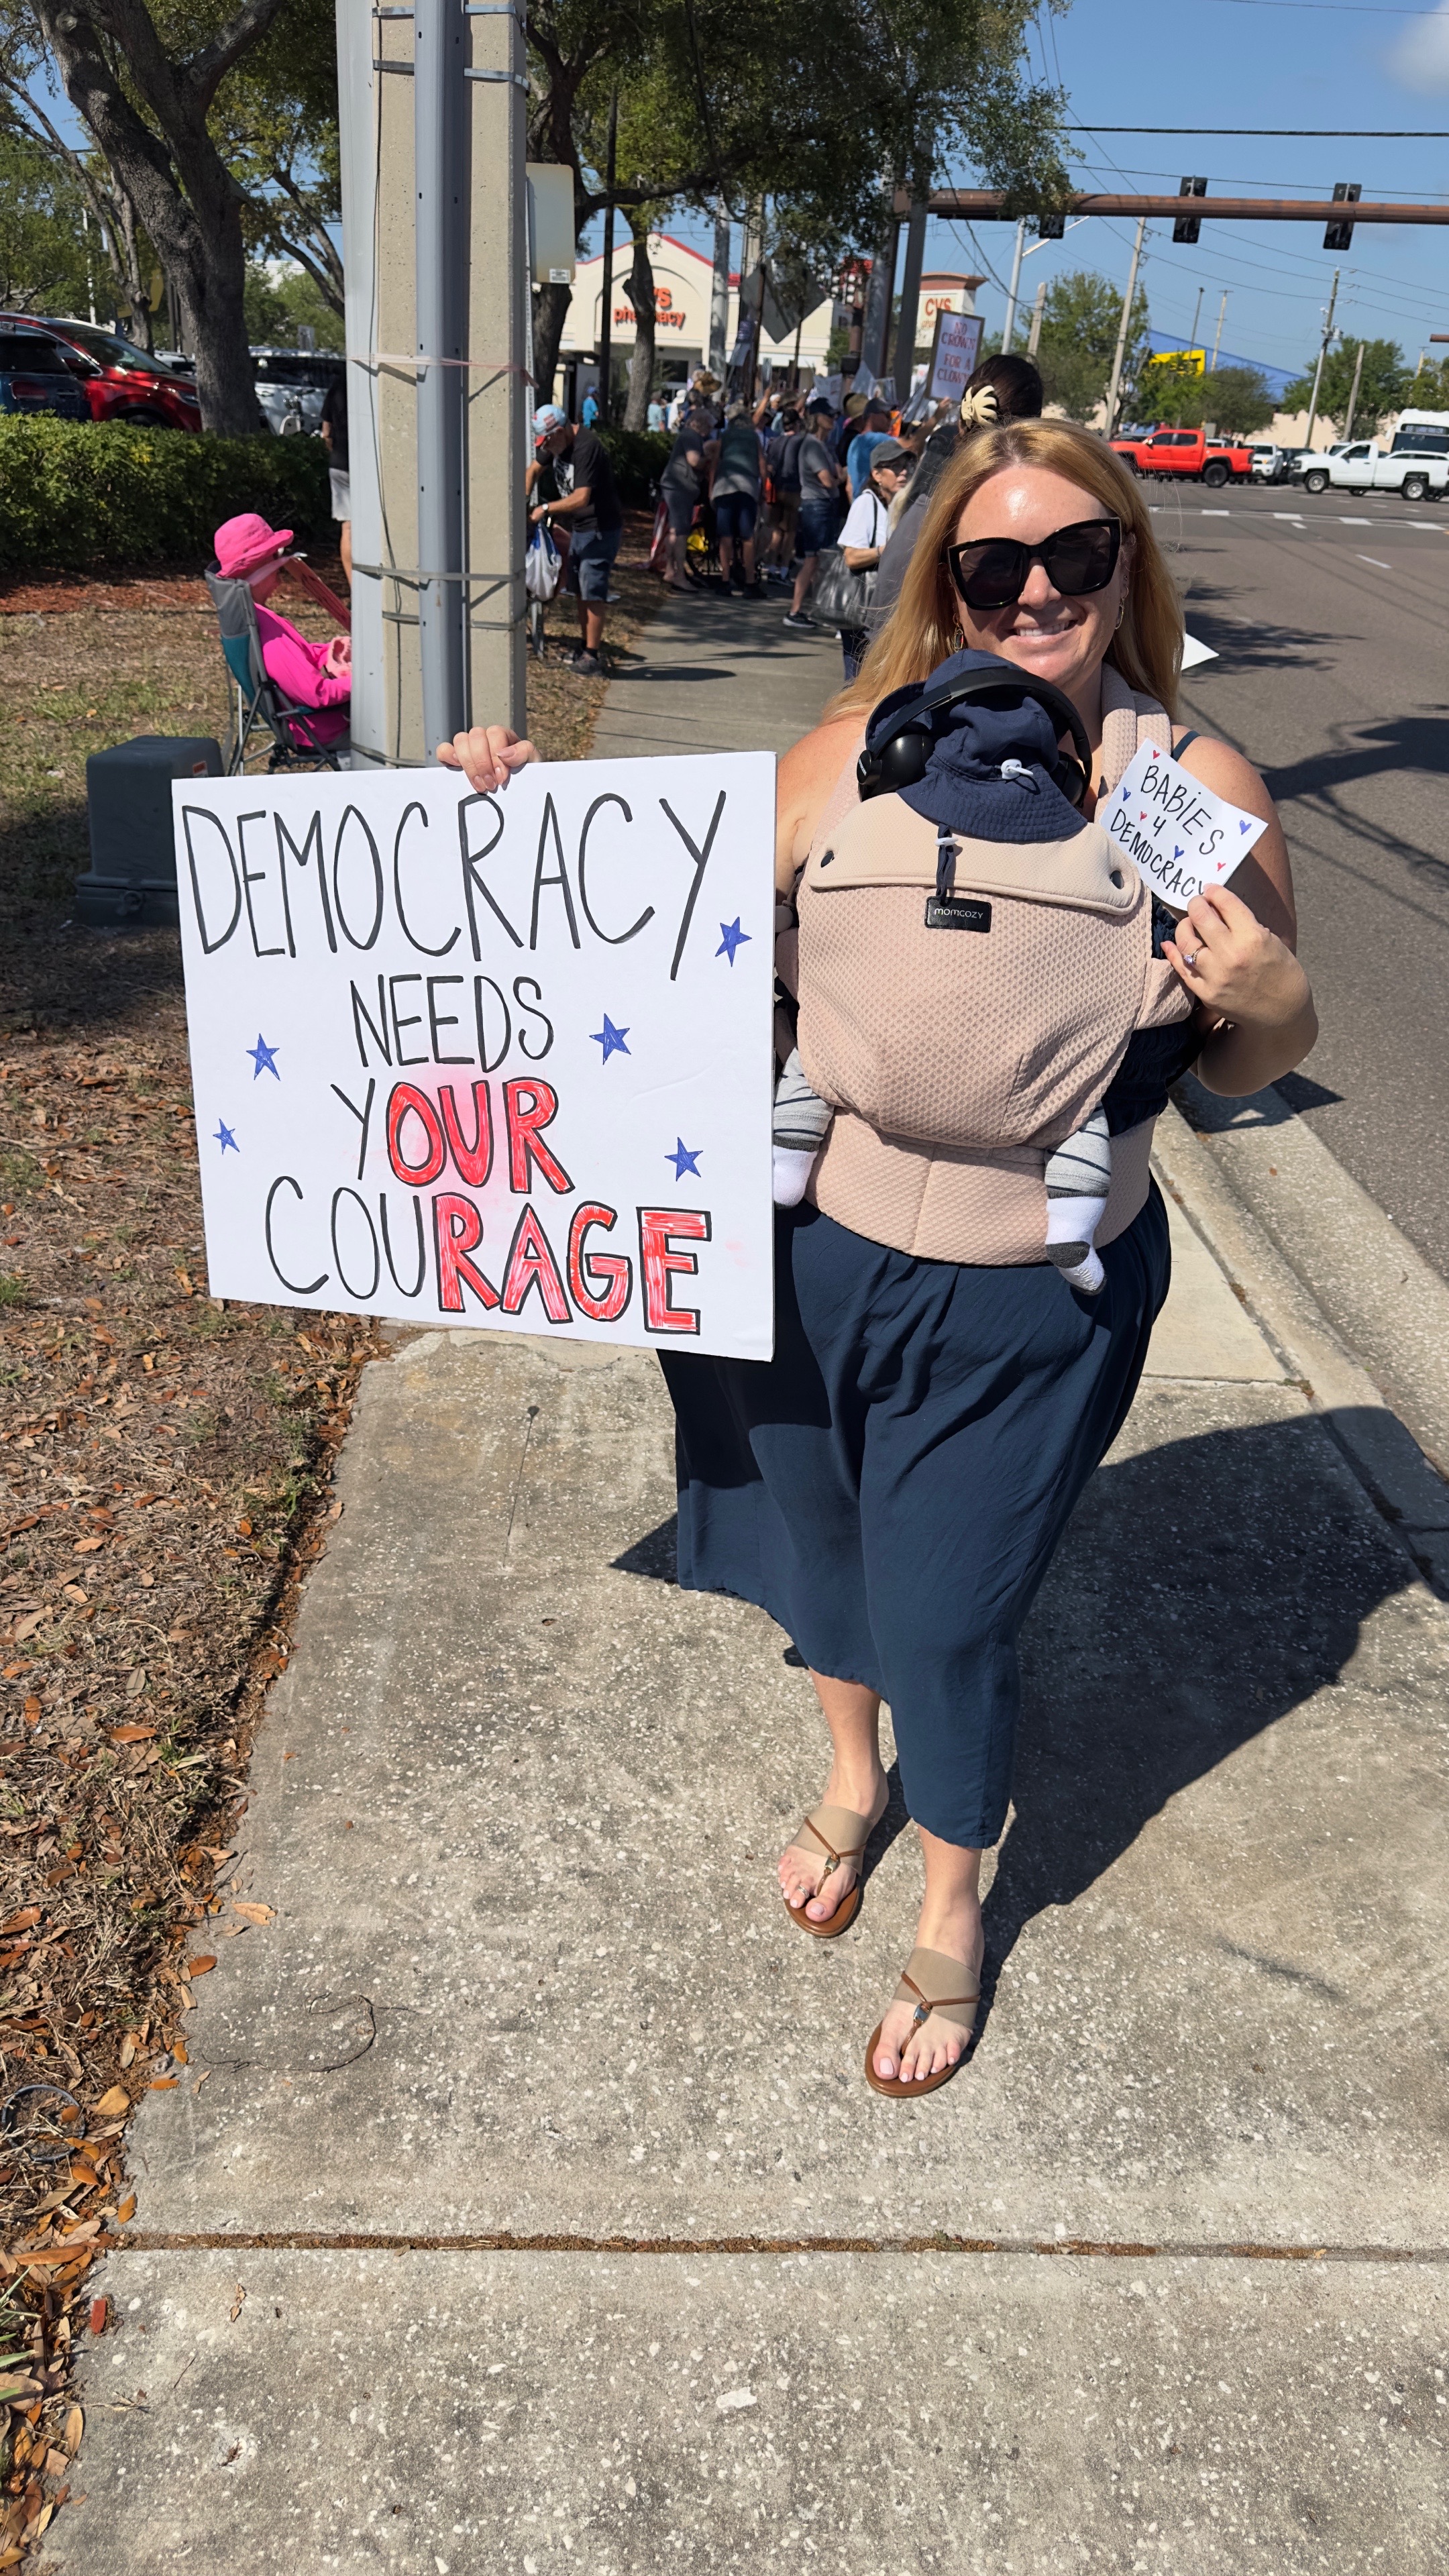 CVS
pharmacy
CVS
NO
CROWN
FOR A
CLOWN
DEMOCRACY
NEEDS
YOUR
COURAGE
BABIES
4
DEMOCRACY
momcozy